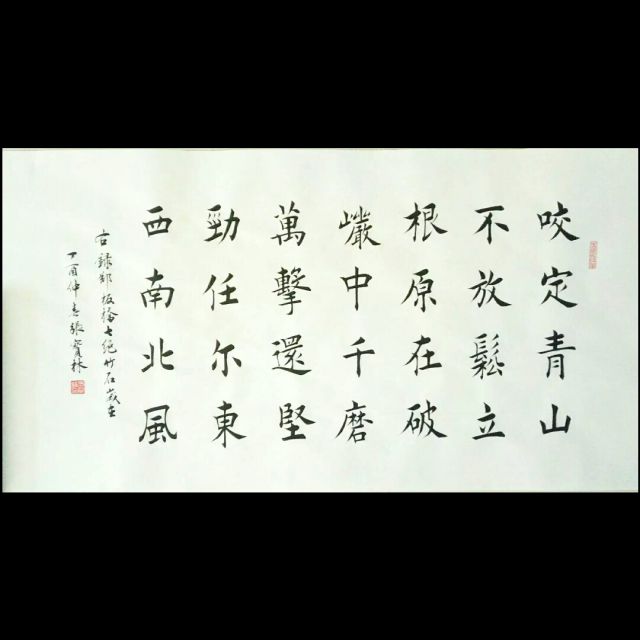 咬定青山
不放鬆立
根原在破
巗中千磨
萬擊還堅
勁任尔東
西南北風
古錄鄭板橋七絕竹石一首在
丁酉仲春張寶林